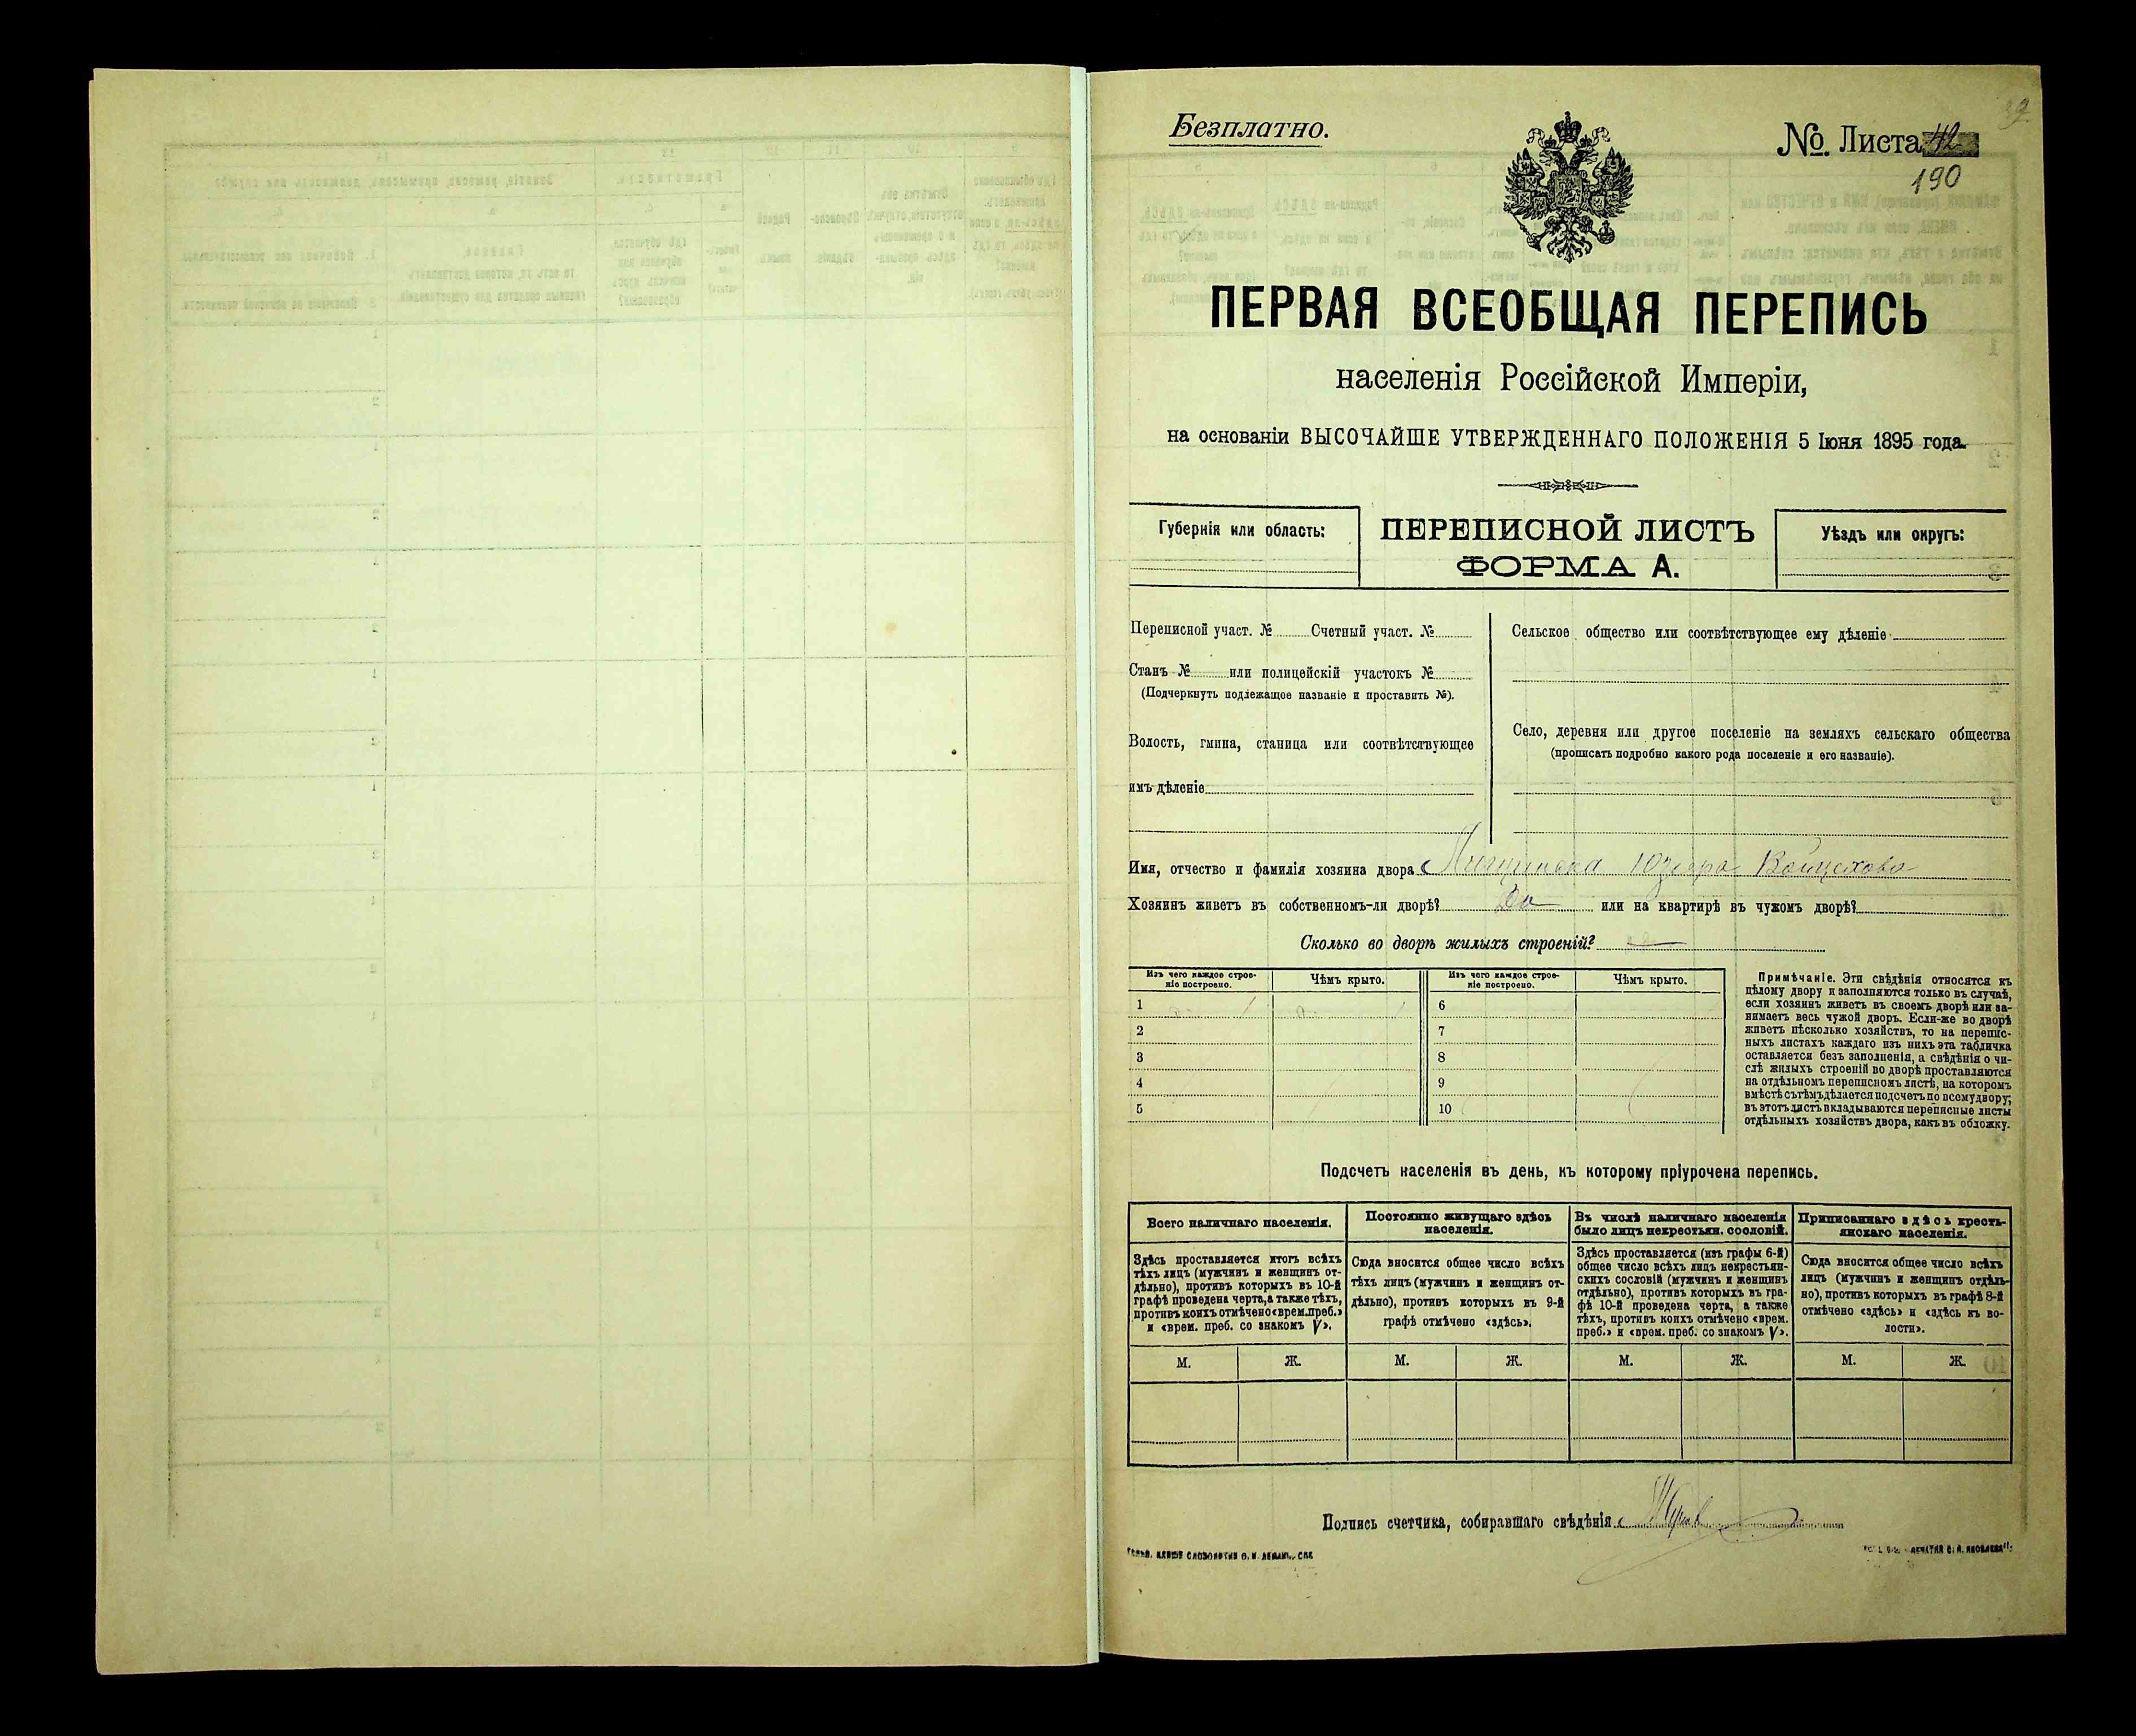 Безплатно.
№ Листа 42
190
ПЕРВАЯ ВСЕОБЩАЯ ПЕРЕПИСЬ
населенія Россійской Имперіи,
на основаніи ВЫСОЧАЙШЕ УТВЕРЖДЕННАГО ПОЛОЖЕНІЯ 5 Іюня 1895 года.
Губернія или область:
ПЕРЕПИСНОЙ ЛИСТЪ
ФОРМА А.
Уѣздъ или округъ:
Переписной участ. № Счетный участ. №
Станъ № или полицейскій участокъ №
(Подчеркнуть подлежащее названіе и проставить №).
Волость, гмина, станица или соотвѣтствующее
имъ дѣленіе
Сельское общество или соотвѣтствующее ему дѣленіе
Село, деревня или другое поселеніе на земляхъ сельскаго общества
(прописать подробно какого рода поселеніе и его названіе).
Имя, отчество и фамилія хозяина двора
Хозяинъ живетъ въ собственномъ-ли дворѣ? Да или на квартирѣ въ чужомъ дворѣ?
Сколько во дворѣ жилыхъ строеній?
Изъ чего каждое строе-
ніе построено.
Чѣмъ крыто.
1
2
3
4
5
Изъ чего каждое строе-
ніе построено.
Чѣмъ крыто.
6
7
8
9
10
Примѣчаніе. Эти свѣдѣнія относятся къ
цѣлому двору и заполняются только въ случаѣ,
если хозяинъ живетъ въ своемъ дворѣ или за-
нимаетъ весь чужой дворъ. Если-же во дворѣ
живетъ нѣсколько хозяйствъ, то на перепис-
ныхъ листахъ каждаго изъ нихъ эта табличка
оставляется безъ заполненія, а свѣдѣнія о чи-
слѣ жилыхъ строеній во дворѣ проставляются
на отдѣльномъ переписномъ листѣ, на которомъ
вмѣстѣ съ тѣмъ дѣлается подсчетъ по всему двору;
въ этотъ листъ вкладываются переписные листы
отдѣльныхъ хозяйствъ двора, какъ въ обложку.
Подсчетъ населенія въ день, къ которому пріурочена перепись.
Всего наличнаго населенія.
Здѣсь проставляется итогъ всѣхъ
тѣхъ лицъ (мужчинъ и женщинъ от-
дѣльно), противъ которыхъ въ 10-й
графѣ проведена черта, а также тѣхъ,
противъ коихъ отмѣчено «врем. преб.»
и «врем. преб. со знакомъ V».
М. Ж.
Постоянно живущаго здѣсь
населенія.
Сюда вносится общее число всѣхъ
тѣхъ лицъ (мужчинъ и женщинъ от-
дѣльно), противъ которыхъ въ 9-й
графѣ отмѣчено «здѣсь».
М. Ж.
Въ числѣ наличнаго населенія
было лицъ некрестьян. сословій.
Здѣсь проставляется (изъ графы 6-й)
общее число всѣхъ лицъ некрестьян-
скихъ сословій (мужчинъ и женщинъ
отдѣльно), противъ которыхъ въ гра-
фѣ 10-й проведена черта, а также
тѣхъ, противъ коихъ отмѣчено «врем.
преб.» и «врем. преб. со знакомъ V».
М. Ж.
Приписаннаго здѣсь кресть-
янскаго населенія.
Сюда вносится общее число всѣхъ
лицъ (мужчинъ и женщинъ отдѣль-
но), противъ которыхъ въ графѣ 8-й
отмѣчено «здѣсь» и «здѣсь къ во-
лости».
М. Ж.
Подпись счетчика, собиравшаго свѣдѣнія